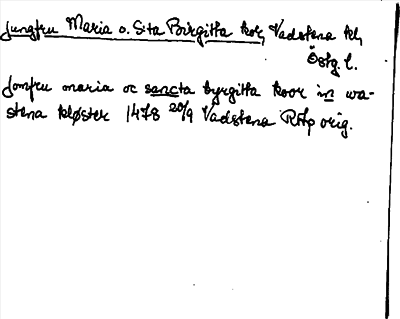 Jungfru Maria o. S:ta Birgitta kor, Vadstena kl,
Östg. l.
Jomfru maria oc sancta byrgitta koor in wa-
stena kloster 1478 20/9 Vadstena RAp orig.